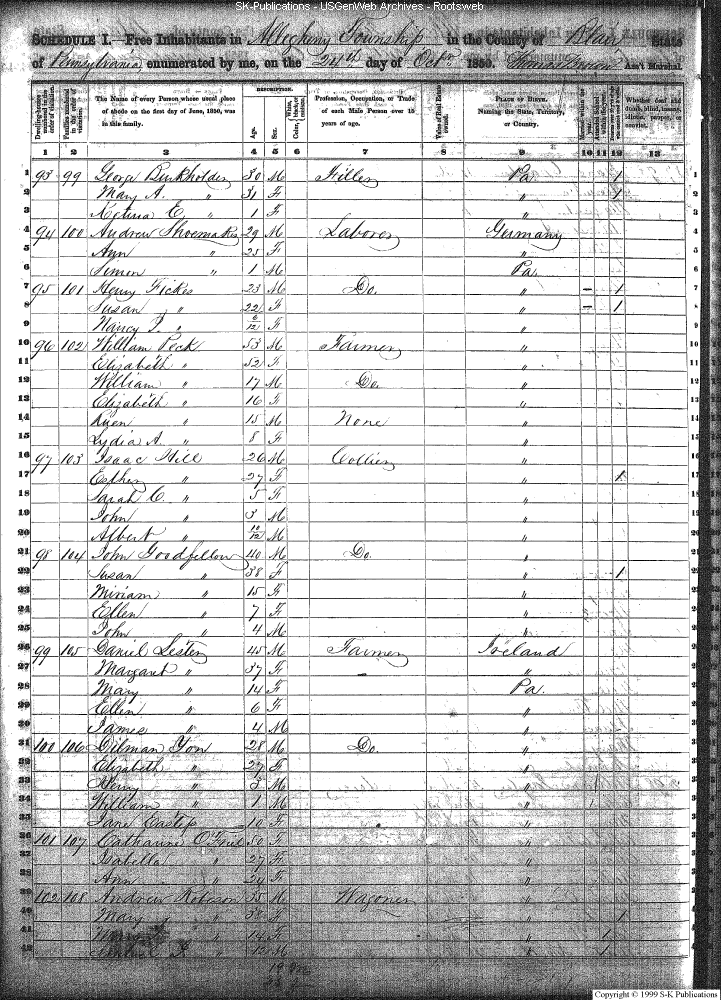 SK-Publications - USGenWeb Archives - Rootsweb
SCHEDULE I.—Free Inhabitants in Allegheny Township in the County of Blair State
of Pennsylvania enumerated by me, on the 24th day of Octr 1850. Ass't Marshal.
DESCRIPTION.
Dwelling-houses numbered in the order of visitation.
Families numbered in the order of visitation.
The Name of every Person whose usual place of abode on the first day of June, 1850, was in this family.
Age.
Sex.
White, black, or mulatto.
Color
Profession, Occupation, or Trade of each Male Person over 15 years of age.
Value of Real Estate owned.
PLACE OF BIRTH. Naming the State, Territory, or Country.
Married within the year.
Whether deaf and dumb, blind, insane, idiotic, pauper, or convict.
1 2 3 4 5 6 7 8 9 10 11 12 13
1 93 99 George Burkholder 30 M Filler Pa / 1
2 Mary A. " 31 F " / 2
3 E. " 1 F " 3
4 94 100 Andrew Shoemaker 29 M Laborer Germany 4
5 Ann " 25 F " 5
6 Simon " 1 M Pa 6
7 95 101 Henry Fickes 23 M Do. " – / 7
8 Susan " 22 F " – / 8
9 Nancy J. " 6/12 F " 9
10 96 102 William Peck 53 M Farmer " 10
11 Elizabeth " 52 F " 11
12 William " 17 M Do. " 12
13 Elizabeth " 16 F " 13
14 " 15 M None " 14
15 Lydia A. " 8 F " 15
16 97 103 Isaac Hill 26 M Collier " 16
17 Esther " 27 F " / 17
18 Sarah C. " 5 F " 18
19 John " 3 M " 19
20 Albert " 10/12 M "
21 98 104 John Goodfellow 40 M Do. "
22 Susan " 38 F " /
23 Miriam " 15 F "
24 Ellen " 7 F "
25 John " 4 M "
26 99 105 Daniel Lester 45 M Farmer Ireland
27 Margaret " 37 F "
28 Mary " 14 F Pa
29 Ellen " 6 F "
30 James " 4 M "
31 100 106 Dilman Yon 28 M Do. "
32 Elizabeth " 27 F "
33 Henry " 3 M "
34 William " 1 M "
35 Jane 10 F "
36 101 107 Catharine O'Friel 50 F "
37 Isabella " 27 F "
38 Ann " 24 F "
39 102 108 Andrew Robison 35 M Wagoner "
40 Mary " 38 F " /
41 " 14 F " /
42 " 12 M " /
Copyright © 1999 S-K Publications